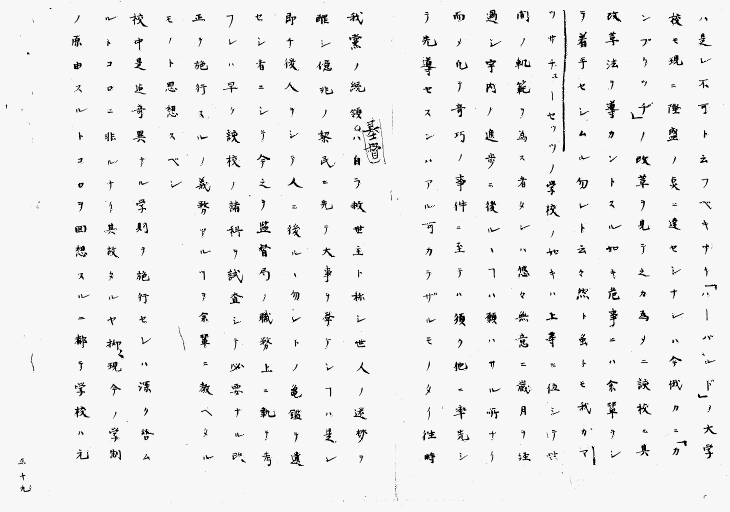 ハ是レ不可ト云フベキナリ「ハーバルド」ノ大学
校モ現ニ隆盛ノ域ニ達セシナレハ今俄カニ「カ
ンブリッヂ」ノ改革ヲ見テ之カ為メニ該校ニ其
改革法ヲ導カントスル如キ危事ニハ余輩ヲシ
テ着手セシムル勿レト云々然ト虽トモ我カマ
ツサチューセッツノ学校ノ如キハ上等ニ位シテ世
間ノ軌範ヲ為ス者タレハ悠々無意ニ歳月ヲ経
過シ宇内ノ進歩ニ後ルヽハ願ハサル所ナリ
而メ凡テ奇巧ノ事件ニ至テハ須ク他ニ率先シ
テ先導セスンハアル可カラザルモノタイ往時
基督
我党ノ統領ハ自ラ救世主ト称シ世人ノ迷夢ヲ
醒シ億兆ノ黎民ニ先テ大事ヲ挙テシフハ是レ
即チ後人ヲシテ人ニ後ルヽ勿レトノ亀鑑ヲ遺
セシ者ニシテ今之ヲ監督局ノ職務上ニ執テ考
フレハ早ク該校ノ諸科ヲ試査シテ必要ナル改
正ヲ施行スルノ義務アルフヲ余輩ニ教ヘタル
モノト思想スベシ
校中是迄奇異ナル学則ヲ施行セシハ深ク咎ム
ルトコロニ非ルナリ其故タルヤ抑現今ノ学制
ノ原由スルトコロヲ回想スルニ都テ学校ハ元
五十九